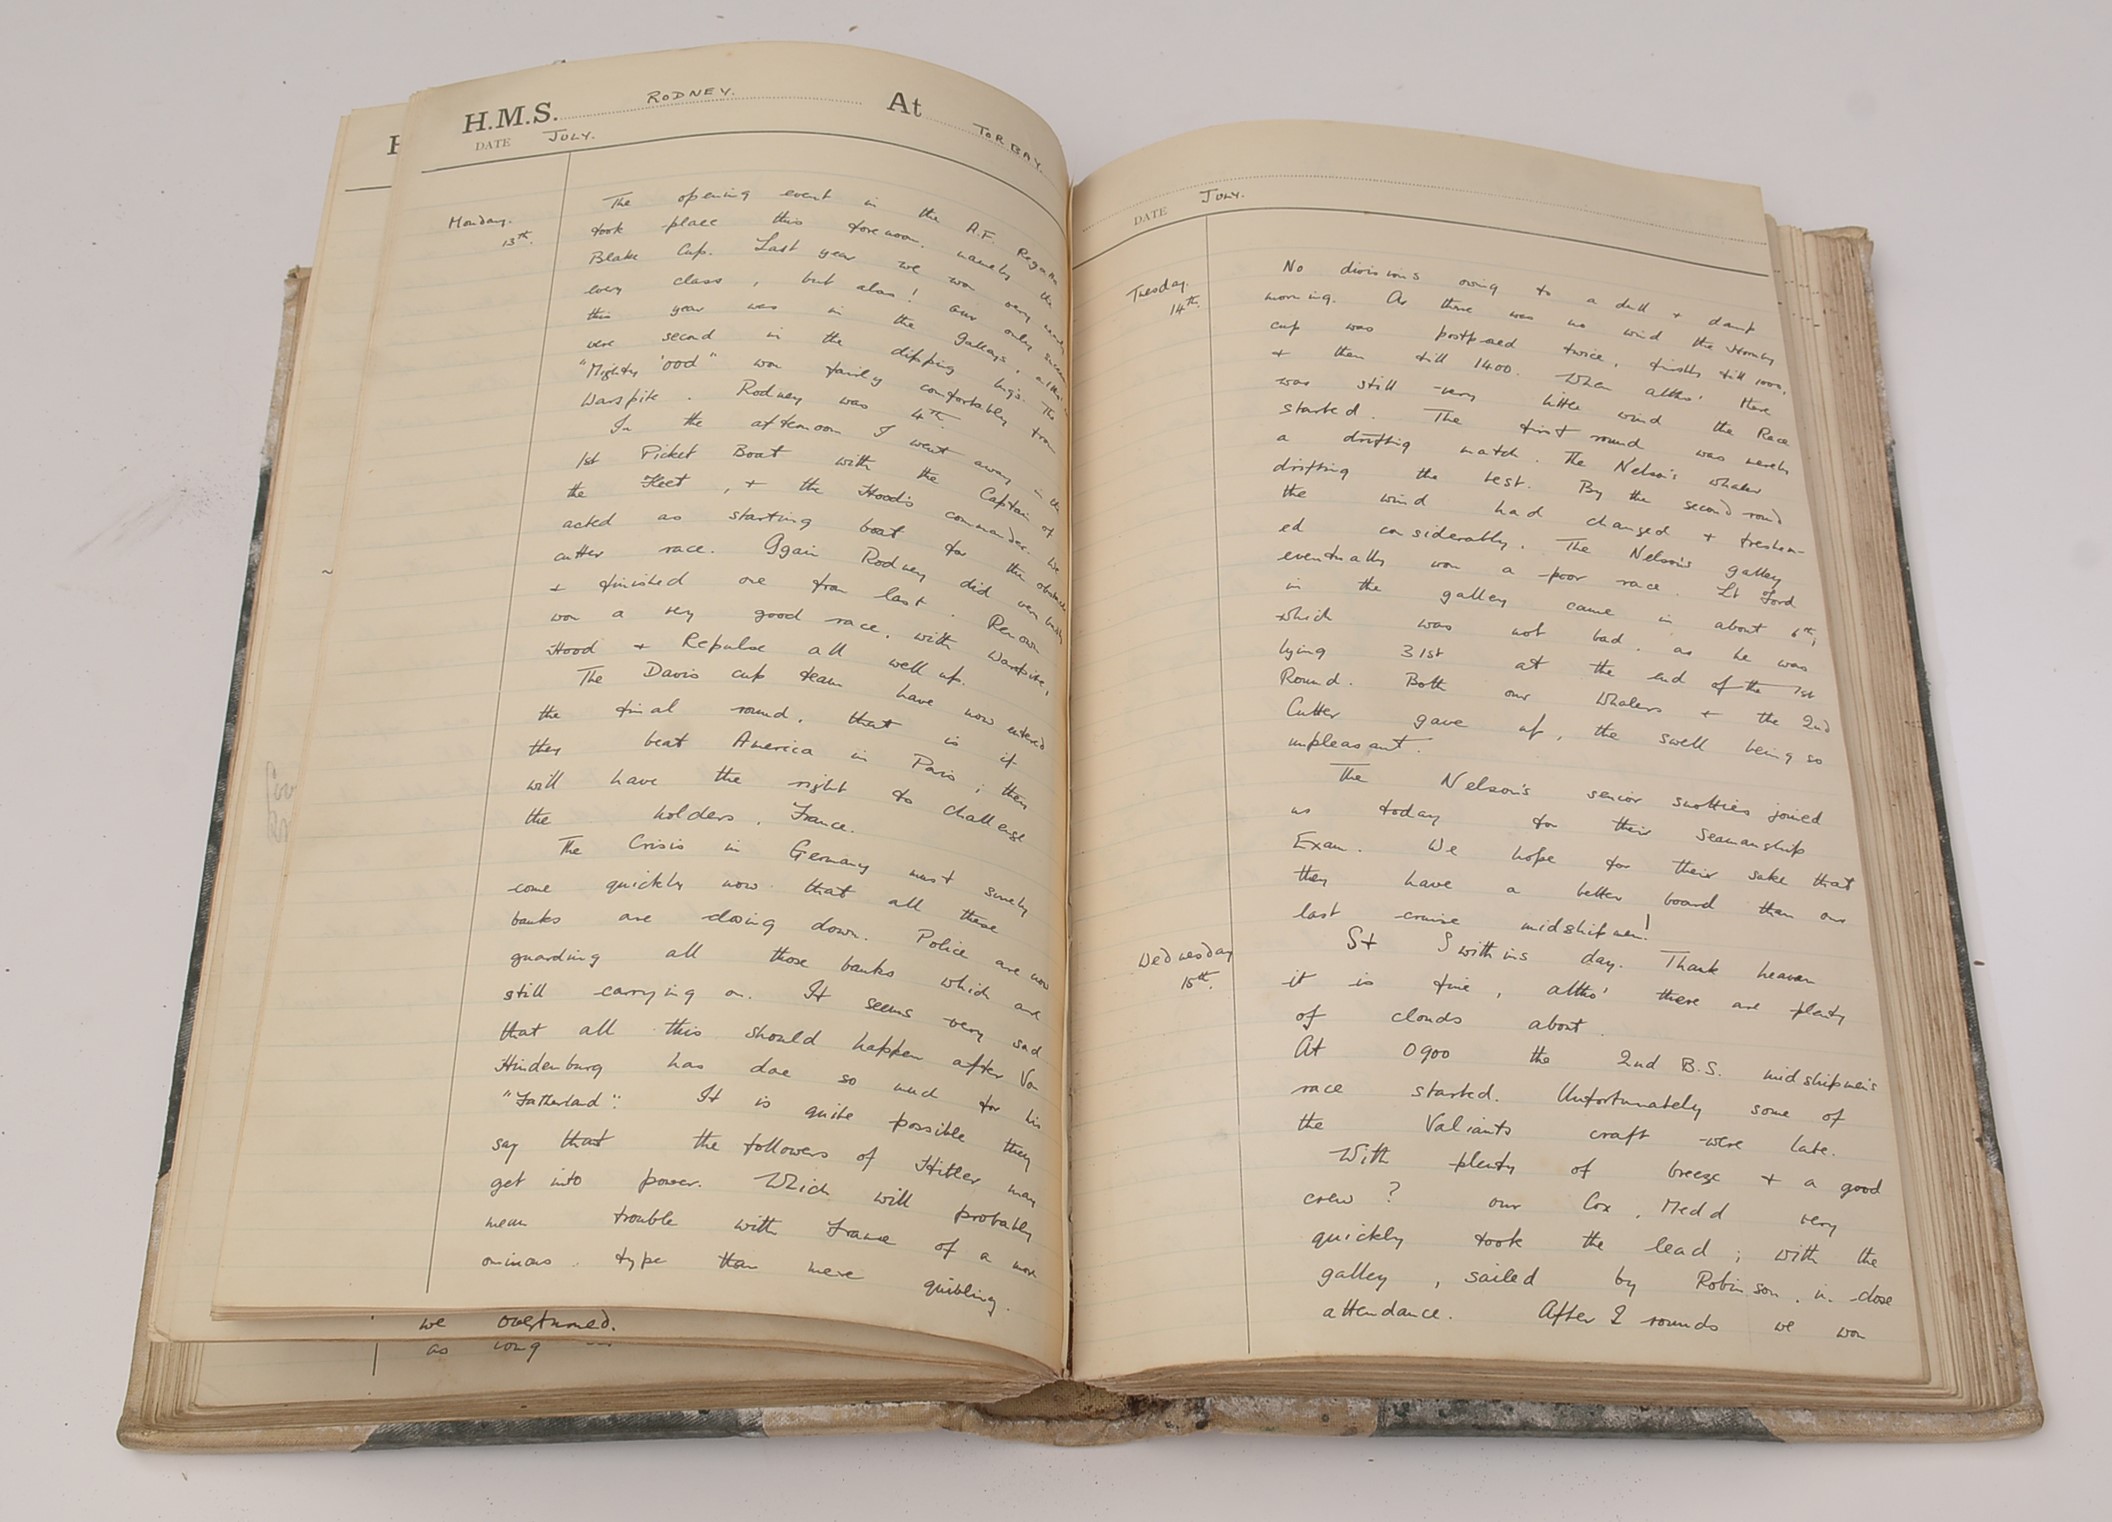 H.M.S. RODNEY. At TORBAY.
DATE JULY.
Monday. 13th.
The opening event in the A.F. Regatta
took place this forenoon. namely the
Blake Cup. Last year we won very nearly
every class, but alas! our only success
this year was in the galleys,
were second in the dipping lug's. The
"Mighty 'ood" won fairly comfortably from
Warspite. Rodney was 4th.
In the afternoon I went away in the
1st Picket Boat with the Captain of
the Fleet, + the Hood's commander. We
acted as starting boat for the obstacle
cutter race. Again Rodney did very badly
+ finished one from last. Renown
won a very good race. with Warspite,
Hood + Repulse all well up.
The Davis cup team have now entered
the final round. that is if
they beat America in Paris; they
will have the right to challenge
the holders, France.
The Crisis in Germany must surely
come quickly now that all these
banks are closing down. Police are now
guarding all those banks which are
still carrying on. It seems very sad
that all this should happen after Von
Hindenburg has done so much for his
"Fatherland". It is quite possible they
say that the followers of Hitler may
get into power. Which will probably
mean trouble with France of a more
ominous. type than mere quibling.
we overturned.
as long
DATE JULY.
Tuesday. 14th.
No divisions owing to a dull + damp
morning. As there was no wind the Hornby
cup was postponed twice, firstly till 1000,
+ then till 1400. When altho' there
was still very little wind the Race
started. The first round was merely
a drifting match. The Nelson's whaler
drifting the best. By the second round
the wind had changed + freshen-
ed considerably. The Nelson's galley
eventually won a poor race. Lt Ford
in the galley came in about 6th,
which was not bad. as he was
lying 31st at the end of the 1st
Round. Both our Whalers + the 2nd
Cutter gave up, the swell being so
unpleasant.
The Nelson's senior snotties joined
us today for their Seamanship
Exam. We hope for their sake that
they have a better board than our
last cruise midshipmen!
Wednesday 15th.
St Swithins day. Thank heaven
it is fine, altho' there are plenty
of clouds about.
At 0900 the 2nd B.S. midshipmen's
race started. Unfortunately some of
the Valiants craft were late.
With plenty of breeze + a good
crew? our Cox, Medd very
quickly took the lead; with the
galley, sailed by Robinson. in close
attendance. After 2 rounds we won